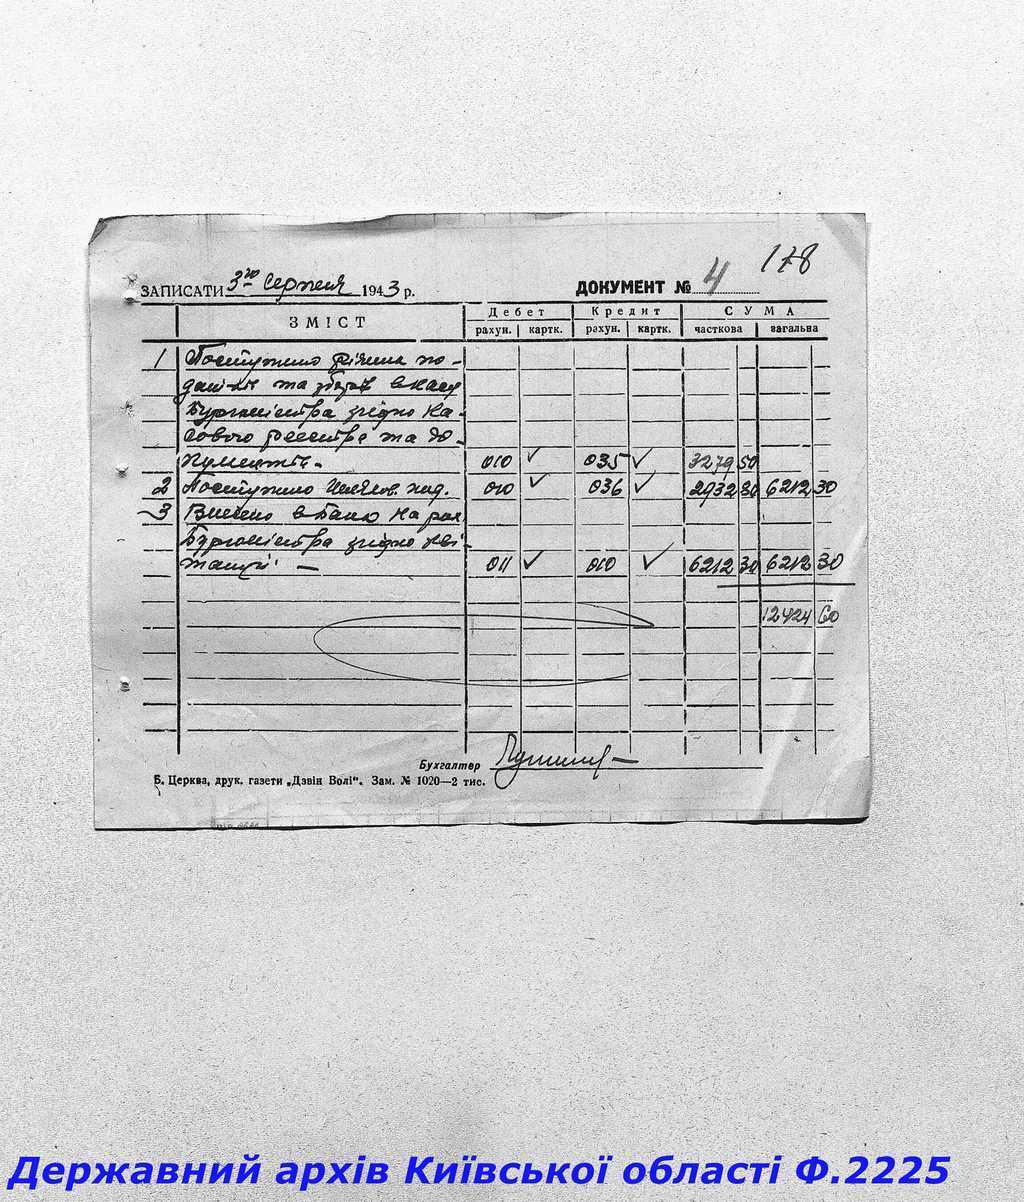 178
ЗАПИСАТИ 3го Серпня 1943 р. ДОКУМЕНТ № 4
ЗМІСТ Дебет Кредит СУМА
рахун. картк. рахун. картк. часткова загальна
1 Поступило різних по-
датків та зборів в касу
Бургомістра згідно Ка-
сового реєстра та до-
кументів. 010 ✓ 035 ✓ 3279 50
2 Поступило под. 010 ✓ 036 ✓ 2932 80 6212 30
3 Внесено в Банк на рах.
Бургомістра згідно кві-
танції — 011 ✓ 010 ✓ 6212 30 6212 30
12424 60
Бухгалтер
Б. Церква, друк. газети „Дзвін Волі“. Зам. № 1020—2 тис.
Державний архів Київської області Ф.2225